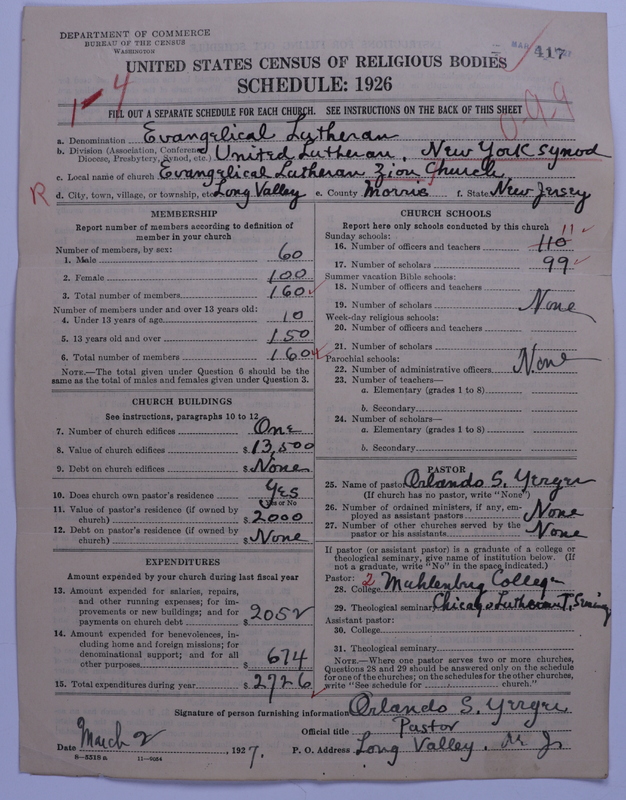 DEPARTMENT OF COMMERCE
BUREAU OF THE CENSUS
WASHINGTON
417
UNITED STATES CENSUS OF RELIGIOUS BODIES
SCHEDULE: 1926
1-4
FILL OUT A SEPARATE SCHEDULE FOR EACH CHURCH. SEE INSTRUCTIONS ON THE BACK OF THIS SHEET
a. Denomination Evangelical Lutheran
b. Division (Association, Conference, Diocese, Presbytery, Synod, etc.) United Lutheran, New York Synod
c. Local name of church Evangelical Lutheran Zion Church
R
d. City, town, village, or township, etc. Long Valley e. County Morris f. State New Jersey
MEMBERSHIP
Report number of members according to definition of
member in your church
Number of members, by sex:
1. Male 60
2. Female 100
3. Total number of members 160
Number of members under and over 13 years old:
4. Under 13 years of age 10
5. 13 years old and over 150
6. Total number of members 160
NOTE.—The total given under Question 6 should be the
same as the total of males and females given under Question 3.
CHURCH BUILDINGS
See instructions, paragraphs 10 to 12
7. Number of church edifices One
8. Value of church edifices $ 13,500
9. Debt on church edifices $ None
10. Does church own pastor's residence Yes
Yes or No
11. Value of pastor's residence (if owned by
church) $ 2000
12. Debt on pastor's residence (if owned by
church) $ None
EXPENDITURES
Amount expended by your church during last fiscal year
13. Amount expended for salaries, repairs,
and other running expenses; for im-
provements or new buildings; and for
payments on church debt $ 2052
14. Amount expended for benevolences, in-
cluding home and foreign missions; for
denominational support; and for all
other purposes $ 674
15. Total expenditures during year $ 2726
CHURCH SCHOOLS
Report here only schools conducted by this church
Sunday schools:
16. Number of officers and teachers 110 11
17. Number of scholars 99
Summer vacation Bible schools:
18. Number of officers and teachers
19. Number of scholars None
Week-day religious schools:
20. Number of officers and teachers
21. Number of scholars
Parochial schools:
22. Number of administrative officers None
23. Number of teachers—
a. Elementary (grades 1 to 8)
b. Secondary
24. Number of scholars—
a. Elementary (grades 1 to 8)
b. Secondary
PASTOR
25. Name of pastor Orlando S. Yerger
(If church has no pastor, write "None")
26. Number of ordained ministers, if any, em-
ployed as assistant pastors None
27. Number of other churches served by the
pastor or his assistants None
If pastor (or assistant pastor) is a graduate of a college or
theological seminary, give name of institution below. (If
not a graduate, write "No" in the space indicated.)
Pastor: 2
28. College Muhlenburg College
29. Theological seminary Chicago Lutheran T. Seminy
Assistant pastor:
30. College
31. Theological seminary
NOTE.—Where one pastor serves two or more churches,
Questions 28 and 29 should be answered only on the schedule
for one of the churches; on the schedules for the other churches,
write "See schedule for church."
Signature of person furnishing information Orlando S. Yerger
Official title Pastor
Date March 2, 1927. P. O. Address Long Valley. N. J.
8—5518 a 11—9054